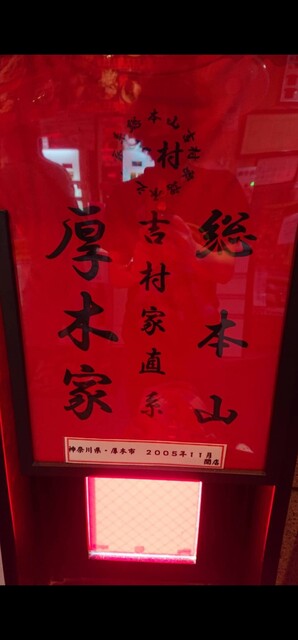 総本山
吉村家直系
厚木家
村
神奈川県・厚木市　２００５年１１月
開店